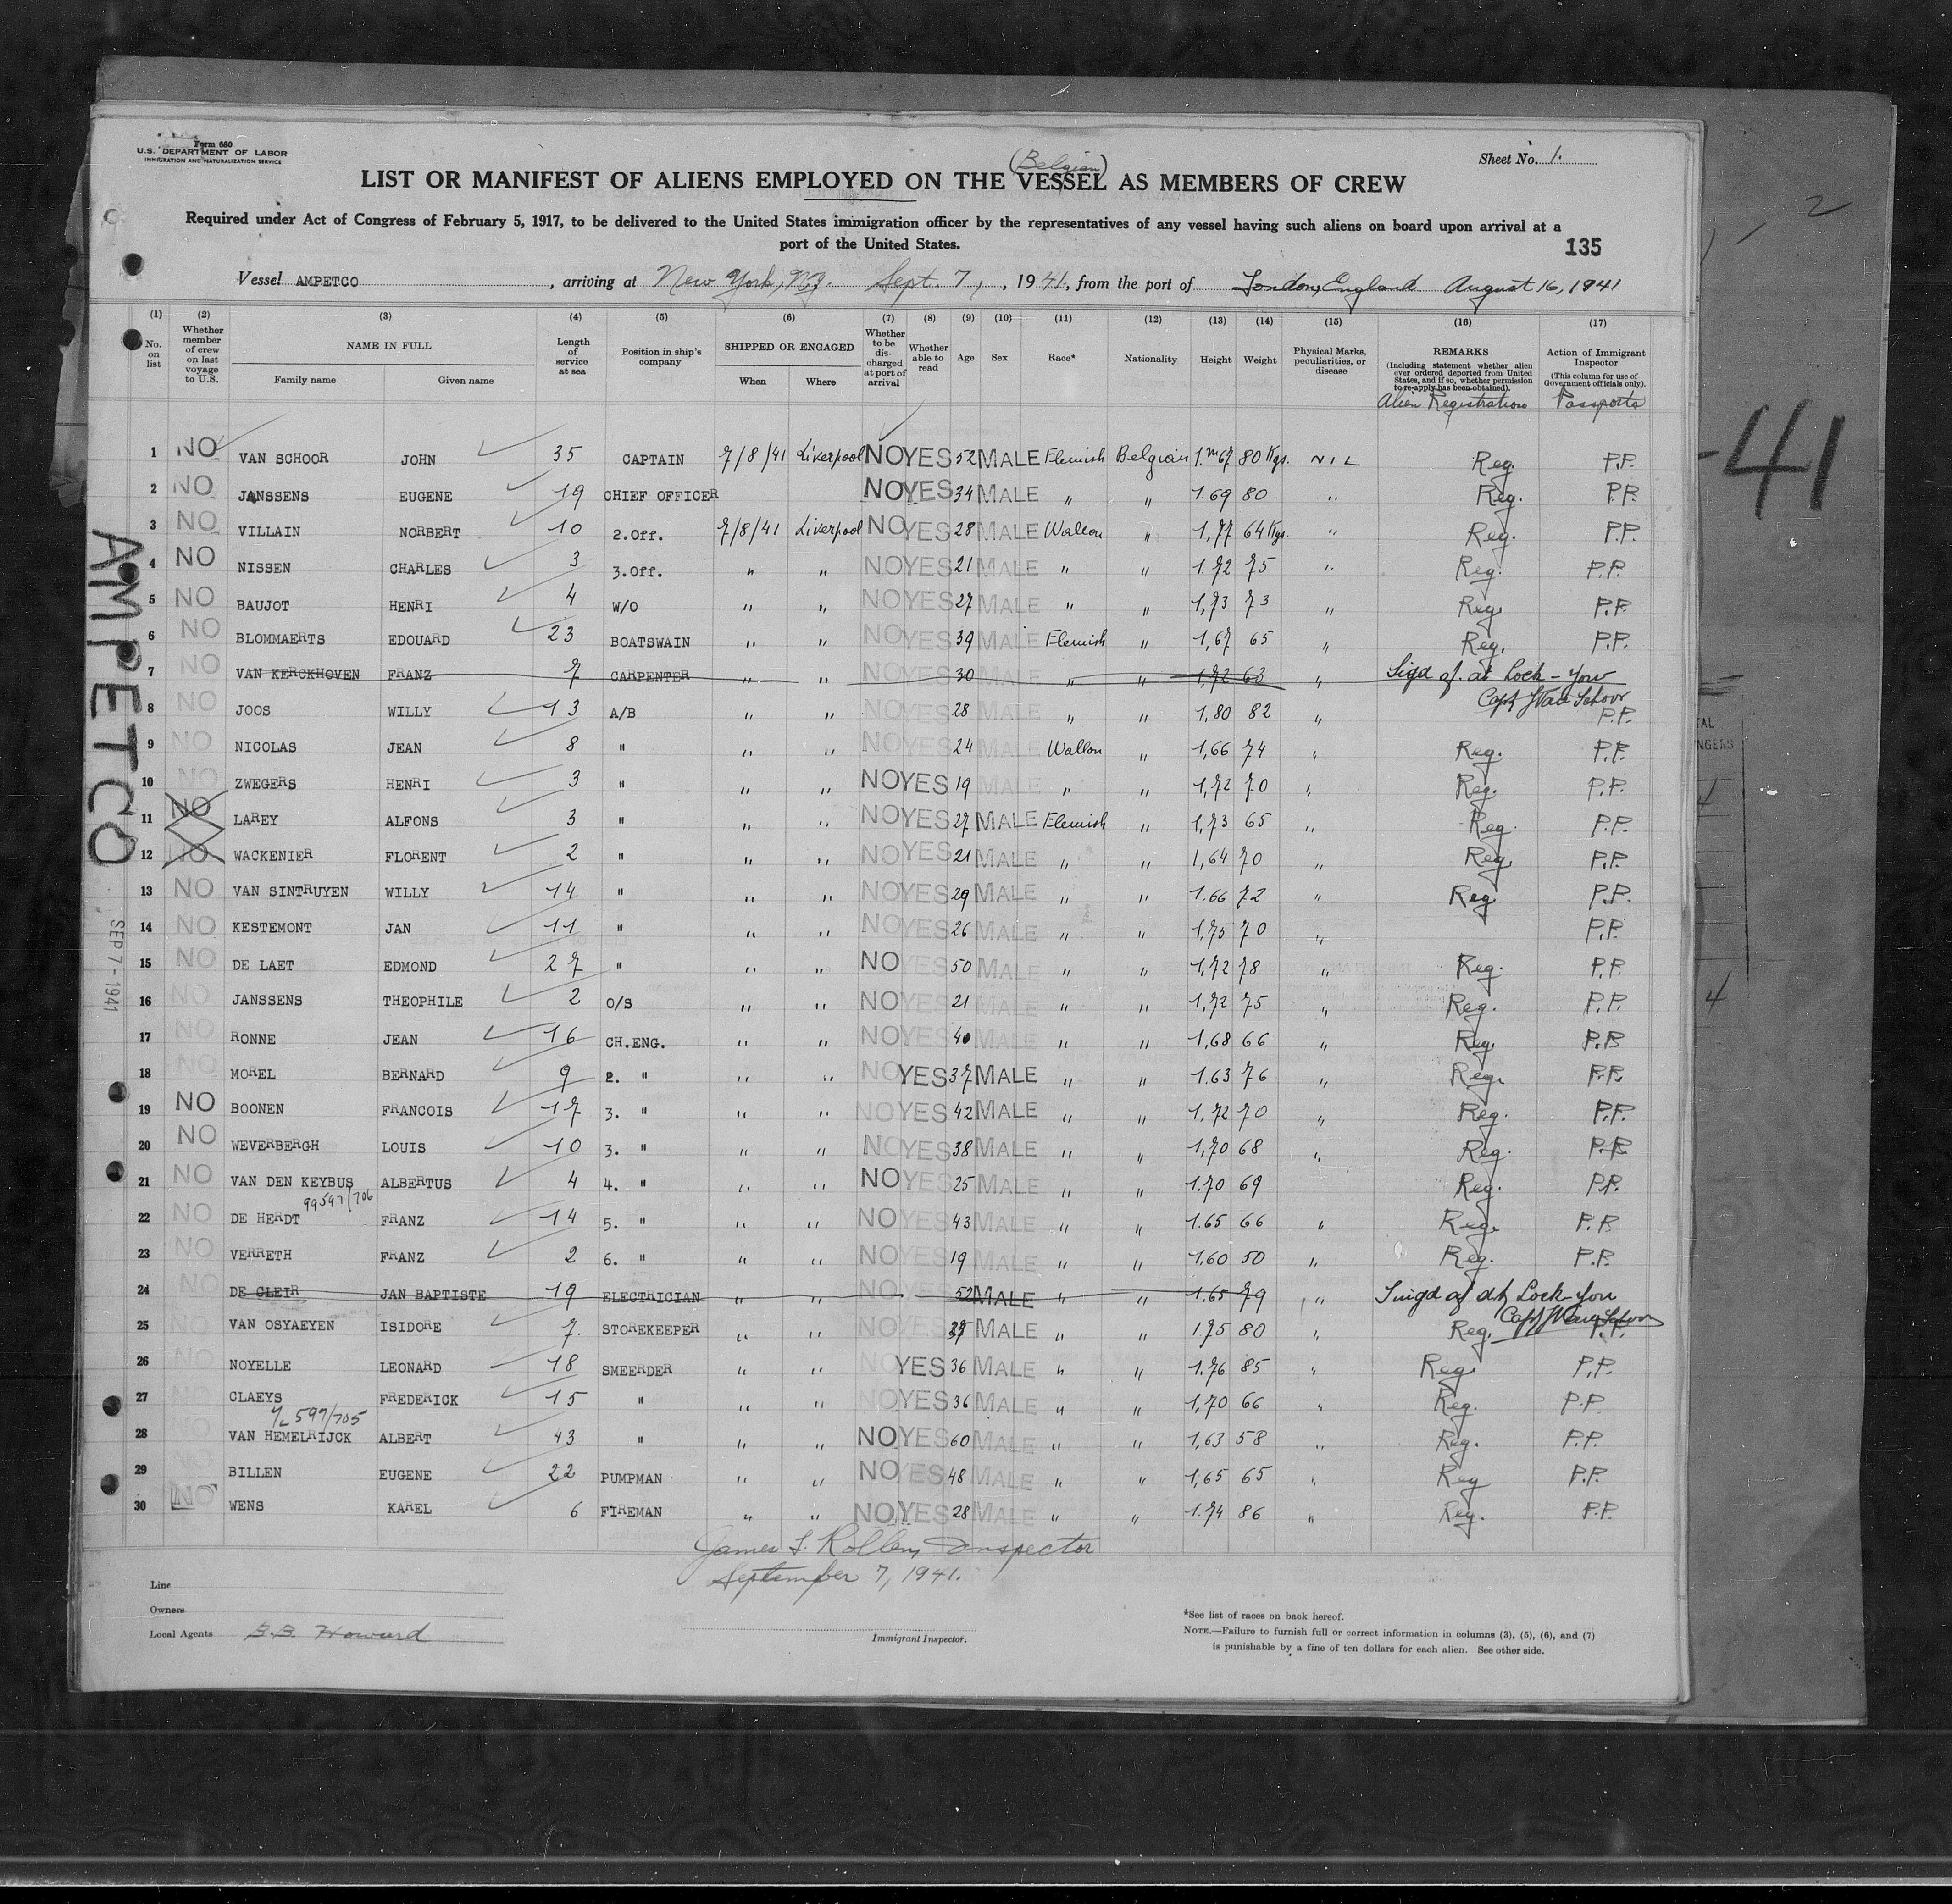 Form 680
U.S. DEPARTMENT OF LABOR
IMMIGRATION AND NATURALIZATION SERVICE
Sheet No. 1.
(Belgian)
LIST OR MANIFEST OF ALIENS EMPLOYED ON THE VESSEL AS MEMBERS OF CREW
Required under Act of Congress of February 5, 1917, to be delivered to the United States immigration officer by the representatives of any vessel having such aliens on board upon arrival at a
port of the United States.
135
Vessel AMPETCO, arriving at New York, N.Y. Sept. 7, , 1941, from the port of London, England August 16, 1941
(1) (2) (3) (4) (5) (6) (7) (8) (9) (10) (11) (12) (13) (14) (15) (16) (17)
No. on list
Whether member of crew on last voyage to U.S.
NAME IN FULL
Family name Given name
Length of service at sea
Position in ship's company
SHIPPED OR ENGAGED
When Where
Whether to be discharged at port of arrival
Whether able to read
Age
Sex
Race*
Nationality
Height
Weight
Physical Marks, peculiarities, or disease
REMARKS
(Including statement whether alien ever ordered deported from United States, and if so, whether permission to re-apply has been obtained).
Alien Registration
Action of Immigrant Inspector
(This column for use of Government officials only).
Passports
1 NO VAN SCHOOR JOHN 35 CAPTAIN 7/8/41 Liverpool NO YES 52 MALE Flemish Belgian 1.m67 80 Kgs. NIL Reg. P.P.
2 NO JANSSENS EUGENE 19 CHIEF OFFICER NO YES 34 MALE " " 1.69 80 " Reg. P.P.
3 NO VILLAIN NORBERT 10 2.Off. 7/8/41 Liverpool NO YES 28 MALE Wallon " 1,77 64 Kgs. " Reg. P.P.
4 NO NISSEN CHARLES 3 3.Off. " " NO YES 21 MALE " " 1.72 75 " Reg. P.P.
5 NO BAUJOT HENRI 4 W/O " " NO YES 27 MALE " " 1,73 73 " Reg. P.P.
6 NO BLOMMAERTS EDOUARD 23 BOATSWAIN " " NO YES 39 MALE Flemish " 1,67 65 " Reg. P.P.
7 NO VAN KERCKHOVEN FRANZ 7 CARPENTER " " NO YES 30 MALE " " 1,72 63 " Sigd of. at Lock-Yow
Capt J Van Schoor
8 NO JOOS WILLY 13 A/B " " NO YES 28 MALE " " 1,80 82 " P.P.
9 NO NICOLAS JEAN 8 " " " NO YES 24 MALE Wallon " 1,66 74 " Reg. P.P.
10 NO ZWEGERS HENRI 3 " " " NO YES 19 MALE " " 1,72 70 " Reg. P.P.
11 NO LAREY ALFONS 3 " " " NO YES 27 MALE Flemish " 1,73 65 " Reg. P.P.
12 NO WACKENIER FLORENT 2 " " " NO YES 21 MALE " " 1,64 70 " Reg. P.P.
13 NO VAN SINTRUYEN WILLY 14 " " " NO YES 29 MALE " " 1.66 72 " Reg P.P.
14 NO KESTEMONT JAN 11 " " " NO YES 26 MALE " " 1,75 70 " P.P.
15 NO DE LAET EDMOND 27 " " " NO YES 50 MALE " " 1,72 78 " Reg. P.P.
16 NO JANSSENS THEOPHILE 2 O/S " " NO YES 21 MALE " " 1,72 75 " Reg. P.P.
17 NO RONNE JEAN 16 CH.ENG. " " NO YES 40 MALE " " 1,68 66 " Reg. P.P.
18 NO MOREL BERNARD 9 2. " " " NO YES 37 MALE " " 1.63 76 " Reg. P.P.
19 NO BOONEN FRANCOIS 17 3. " " " NO YES 42 MALE " " 1,72 70 " Reg. P.P.
20 NO WEVERBERGH LOUIS 10 3. " " " NO YES 38 MALE " " 1,70 68 " Reg. P.P.
21 NO VAN DEN KEYBUS ALBERTUS 4 4. " " " NO YES 25 MALE " " 1.70 69 Reg. P.P.
99597/706
22 NO DE HERDT FRANZ 14 5. " " " NO YES 43 MALE " " 1.65 66 " Reg. P.P.
23 NO VERRETH FRANZ 2 6. " " " NO YES 19 MALE " " 1.60 50 " Reg. P.P.
24 NO DE CLEIR JAN BAPTISTE 19 ELECTRICIAN " " NO 52 MALE " " 1.65 79 " Singd of at Lock-You
Capt J Van Schoor
25 NO VAN OSYAEYEN ISIDORE 7. STOREKEEPER " " NO YES 37 MALE " " 1.75 80 " Reg. P.P.
26 NO NOYELLE LEONARD 18 SMEERDER " " NO YES 36 MALE " " 1.76 85 " Reg. P.P.
27 NO CLAEYS FREDERICK 15 " " " NO YES 36 MALE " " 1,70 66 " Reg. P.P.
597/705
28 NO VAN HEMELRIJCK ALBERT 43 " " " NO YES 60 MALE " " 1,63 58 " Reg. P.P.
29 NO BILLEN EUGENE 22 PUMPMAN " " NO YES 48 MALE " " 1,65 65 " Reg P.P.
30 NO WENS KAREL 6 FIREMAN " " NO YES 28 MALE " " 1.74 86 " Reg. P.P.
James F. Inspector
September 7, 1941.
Line
Owners
Local Agents B.B. Howard
Immigrant Inspector.
*See list of races on back hereof.
NOTE.—Failure to furnish full or correct information in columns (3), (5), (6), and (7)
is punishable by a fine of ten dollars for each alien. See other side.
AMPETCO
SEP 7 - 1941
2
-41
4